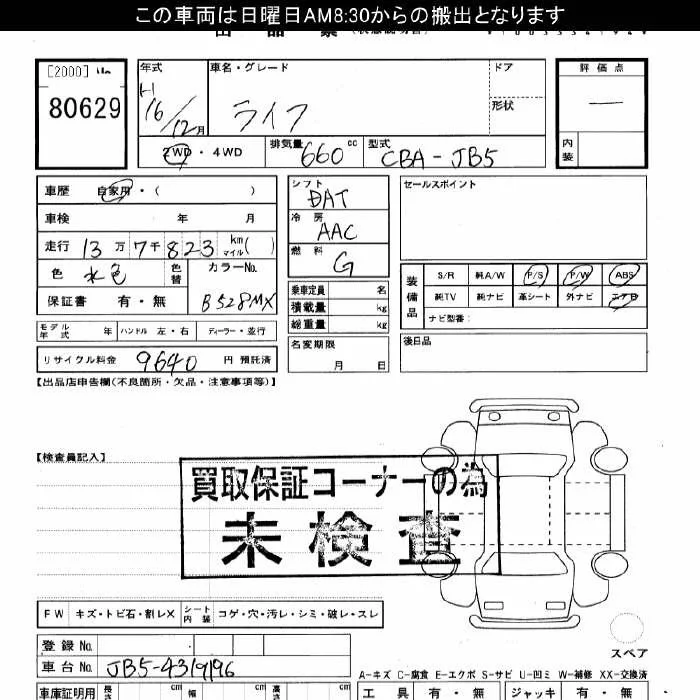 この車両は日曜日AM8:30からの搬出となります
出品票
[2000] No 年式 車名・グレード ドア 評価点
80629 H 16/12月 ライフ 形状 —
2WD・4WD 排気量 660 cc 型式 CBA-JB5 内装
車歴 自家用・( ) シフト DAT セールスポイント
車検 年 月 冷房 AAC
走行 13万7千823 km マイル( ) 燃料 G
色 水色 色替 カラーNo. B528MX 乗車定員 名 装備品 S/R 純A/W P/S P/W ABS
保証書 有・無 積載量 kg 純TV 純ナビ 革シート 外ナビ エアB
総重量 kg ナビ型番:
モデル年式 年 ハンドル 左・右 ディーラー・並行 名変期限 月 日 後日品
リサイクル料金 9640 円 預託済
【出品店申告欄(不良箇所・欠品・注意事項等)】
【検査員記入】
買取保証コーナーの為
未検査
FW キズ・トビ石・割レX シート内装 コゲ・穴・汚レ・シミ・破レ・スレ
登録No. スペア
車台No. JB5-4319196
A-キズ C-腐食 E-エクボ S-サビ U-凹ミ W-補修 XX-交換済
車庫証明用 長さ cm 幅 cm 高さ cm 工具 有・無 ジャッキ 有・無